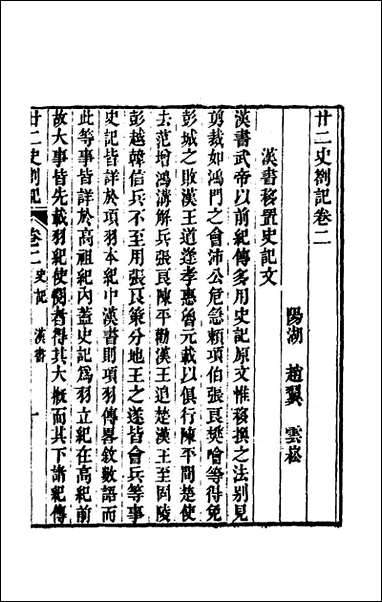 廿二史劄記卷二
陽湖 趙翼 雲崧
漢書移置史記文
漢書武帝以前紀傳多用史記原文惟移換之法別見
剪裁如鴻門之會沛公危急賴項伯張良樊噲等得免
彭城之敗漢王道逢孝惠魯元載以俱行陳平間楚使
去范增鴻溝解兵張良陳平勸漢王追楚漢王至固陵
彭越韓信兵不至用張良策分地王之遂皆會兵等事
史記皆詳於項羽本紀中漢書則項羽傳畧敘數語而
此等事皆詳於高祖紀內蓋史記爲羽立紀在高紀前
故大事皆先載羽紀使閱者得其大概而其下諸紀傳
廿二史劄記 卷二 史記 漢書 一